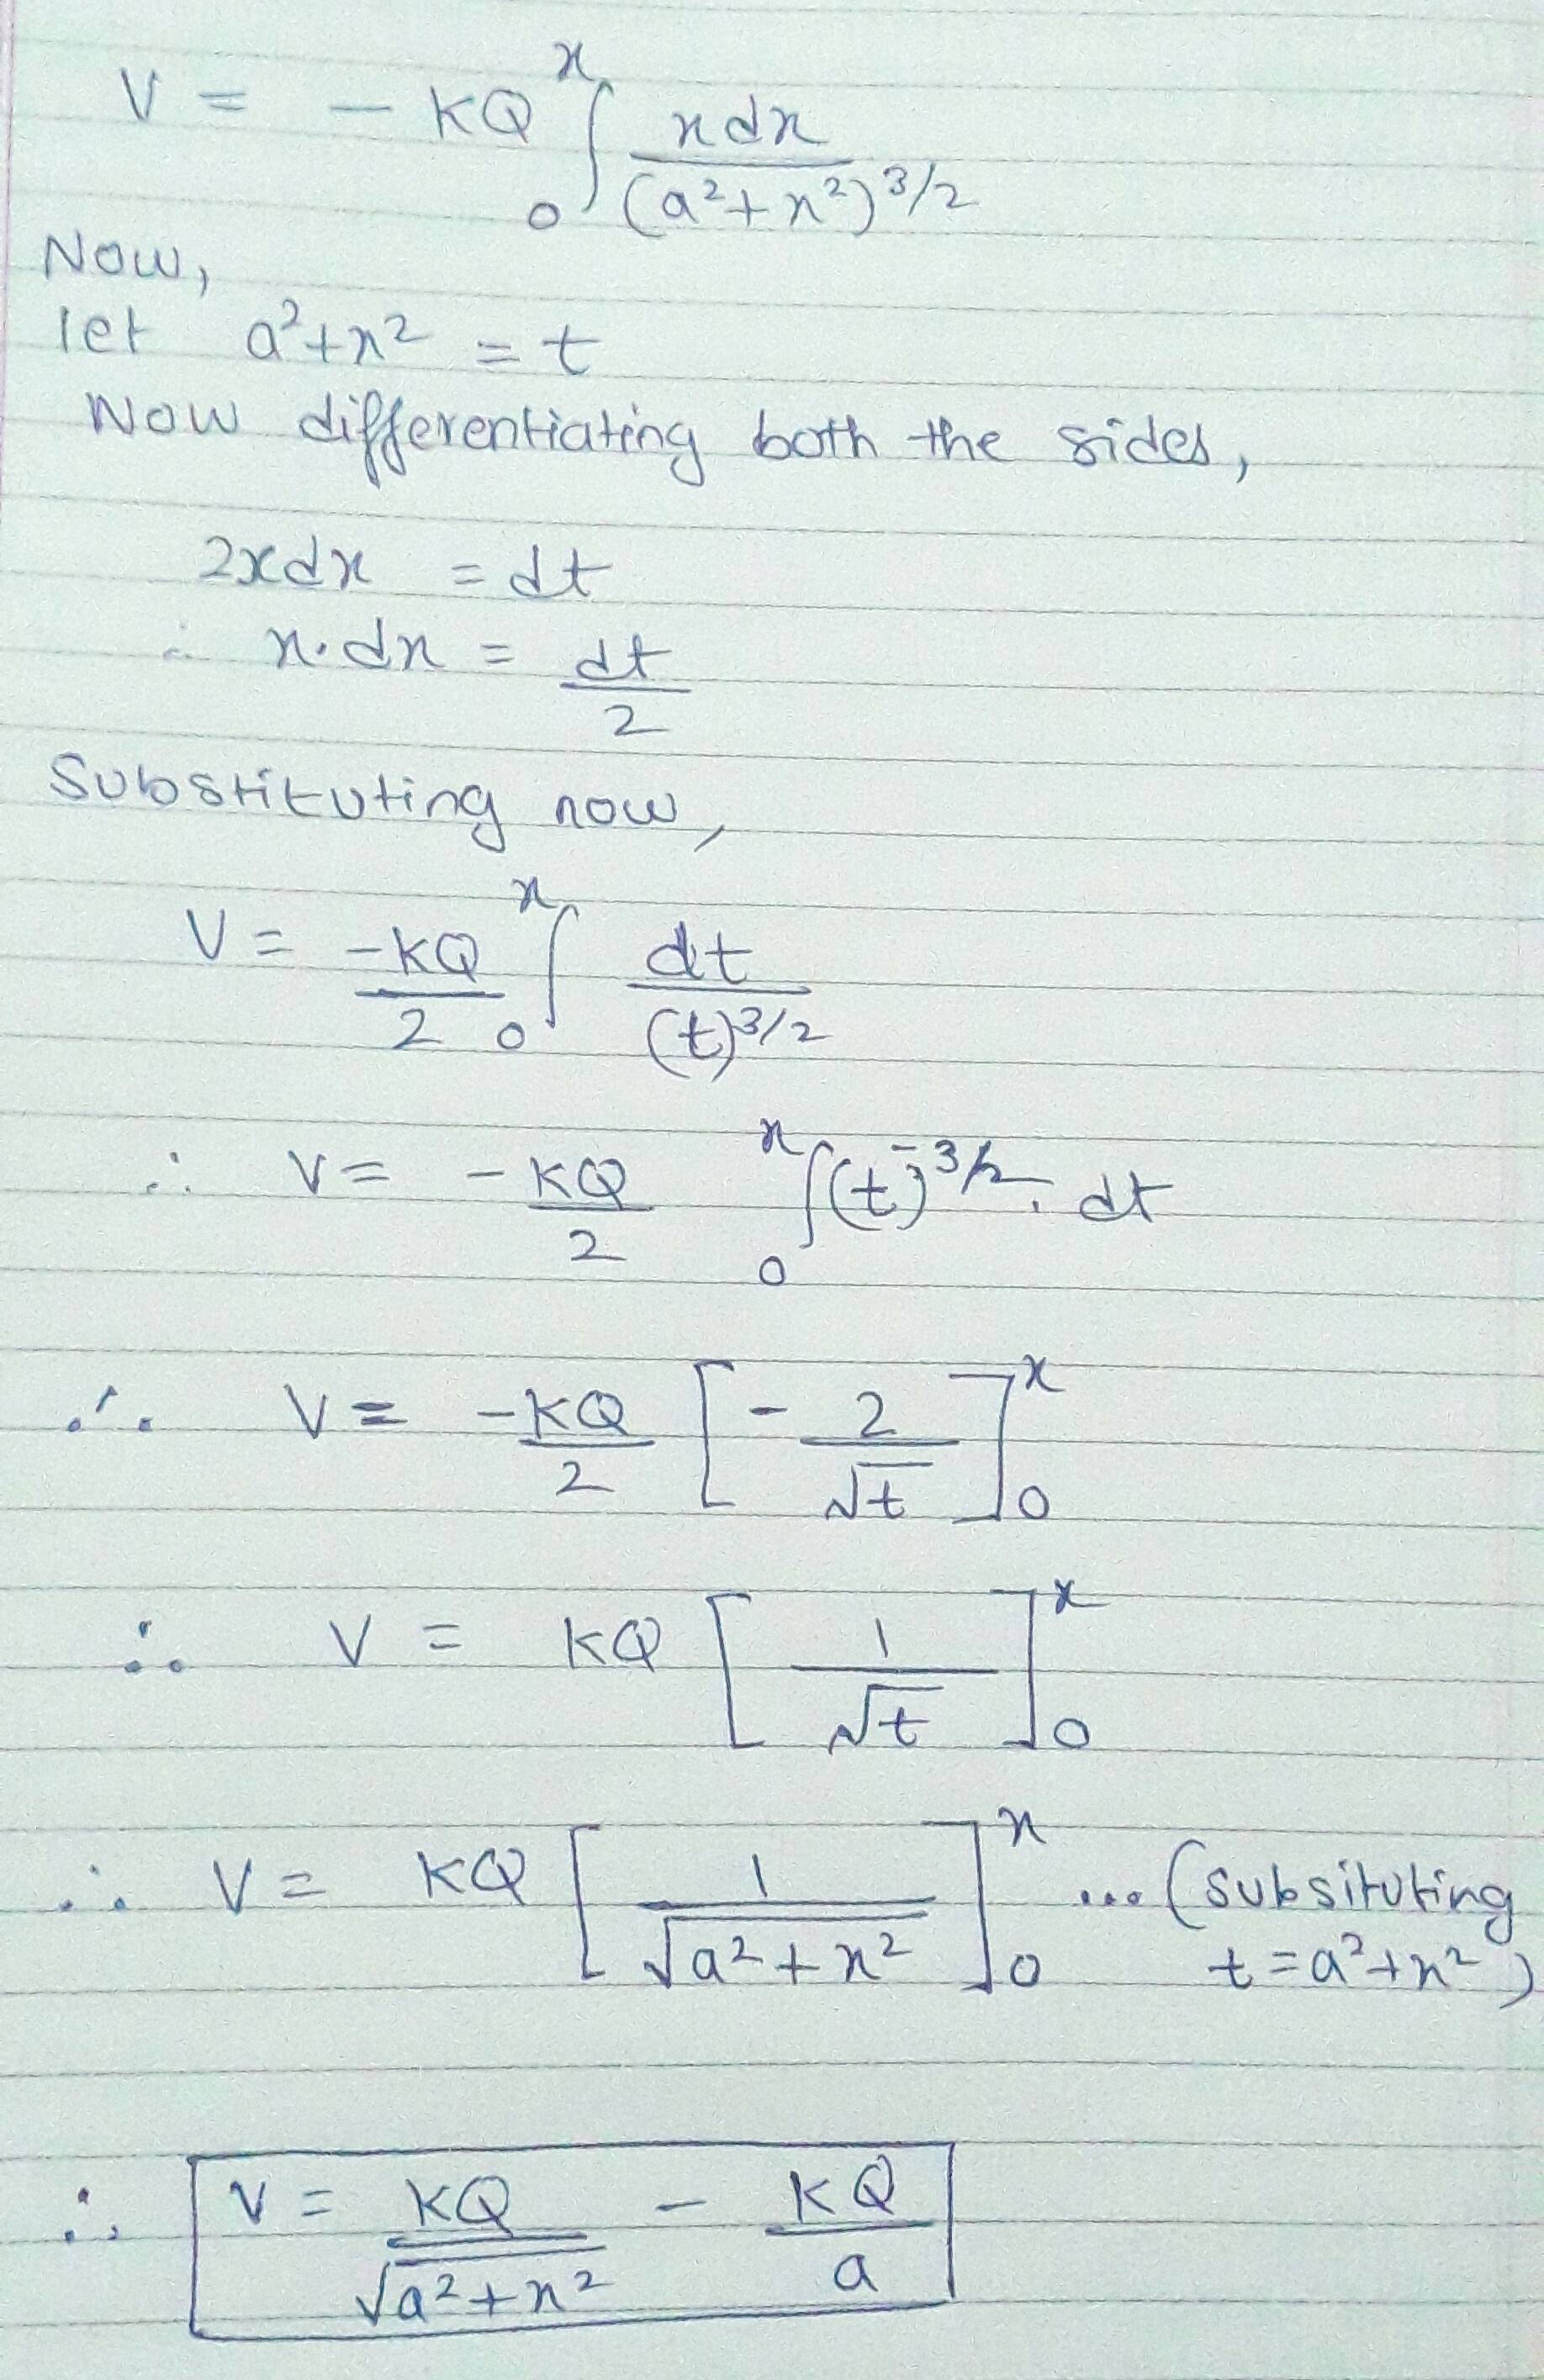 V = - KQ ₀∫ˣ xdx / (a²+x²)^3/2
Now,
let a²+x² = t
Now differentiating both the sides,
2xdx = dt
∴ x.dx = dt/2
Substituting now,
V = -KQ/2 ₀∫ˣ dt/(t)^3/2
∴ V = -KQ/2 ₀∫ˣ (t)^-3/2 . dt
∴ V = -KQ/2 [ - 2/√t ]₀ˣ
∴ V = KQ [ 1/√t ]₀ˣ
∴ V = KQ [ 1/√a²+x² ]₀ˣ ... (subsituting t = a²+x²)
∴ V = KQ/√a²+x² - KQ/a